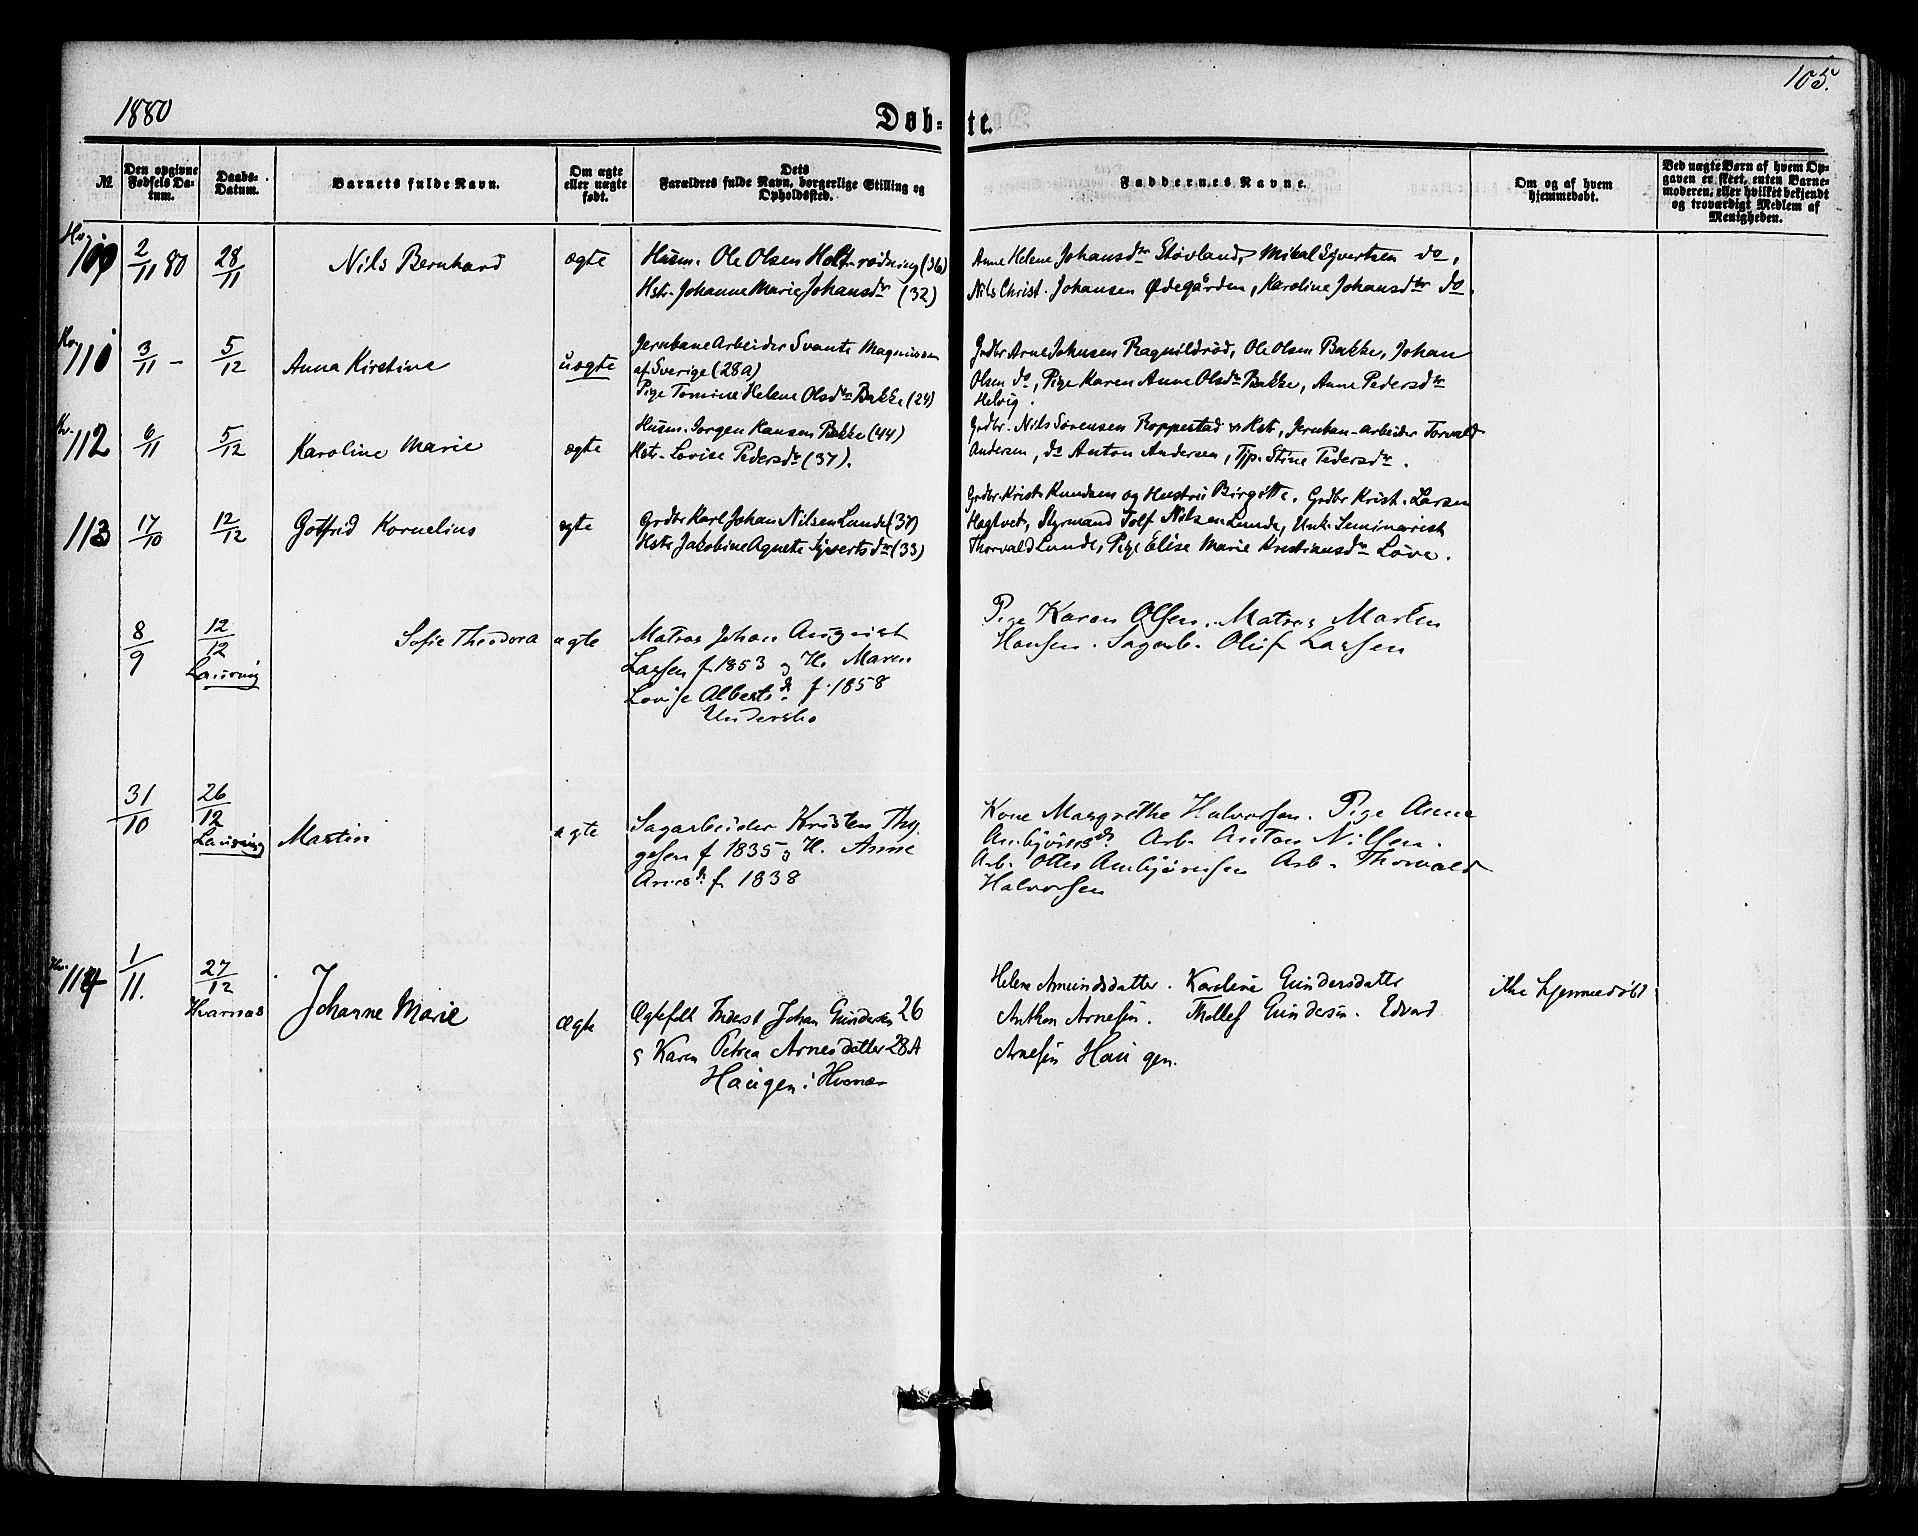 1880
Døb-te.
105.
№
Den opgivne Fødsels Da-tum.
Daabs-Datum.
Barnets fulde Navn.
Om ægte eller uægte født.
Dets Forældres fulde Navn, borgerlige Stilling og Opholdssted.
Faddernes Navne.
Om og af hvem hjemmedøbt.
Ved uægte Børn af hvem Op-gaven er skeet, enten Barne-moderen, eller hvilket bekjendt og troværdigt Medlem af Menigheden.
Hv.
109 2/11 80 28/11 Nils Bernhard ægte Husm. Ole Olsen Holt-rødning (36) Anne Helene Johansdtr Støvland, Mikal Syvertsen do,
Hstr. Johanne Marie Johansdtr (32) Nils Christ. Johansen Ødegården, Karoline Johansdtr do.
Hv.
110 3/11 - 5/12 Anna Kirstine uægte Jernbane Arbeider Svante Magnusson Grdbr Arne Johnsen Ragnildrød, Ole Olsen Bakke, Johan
af Sverige (28a) Olsen do, Pige Karen Anne Olsdtr Bakke, Anne Pedersdtr
Pige Tomine Helene Olsdtr Bakke (24) Helvig.
Hv.
112 6/11 5/12 Karoline Marie ægte Husm. Jørgen Hansen Bakke (44) Grdbr. Nils Sørensen Roppestad og Hstr, Jernban-arbeider Torvald
Hstr. Lovise Pedersdtr (37). Andersen, do Anton Andersen, Tjp. Stine Pedersdtr.
113 17/10 12/12 Gotfrid Kornelius ægte Grdbr Karl Johan Nilsen Lunde (37) Grdbr. Krist. Knudsen og Hustru Birgitte. Grdbr Krist. Larsen
Hstr Jakobine Agnete Syvertsdtr (33) Hagtvet, Styrmand Tolf Nilsen Lunde, Unk. Seminarist
Thorvald Lunde, Pige Elise Marie Kristiansdtr Løve.
8/9 12/12 Laurvig Sofie Theodora ægte Matros Johan August Pige Karen Olsen. Matros Marten
Larsen f. 1853 og H. Maren Hansen. Sagarb. Oluf Larsen
Lovise Albertsdr f. 1858
Undersbo
31/10 26/12 Laurvig Martin ægte Sagarbeider Kristen Thy- Kone Margrethe Halvorsen. Pige Anne
gesen f 1835 og H. Anne Ambjørnsdr. Arb. Anton Nilsen.
Arnesdr f. 1838 Arb. Otter Ambjørnsen Arb. Thorvald
Halvorsen
Hv.
114 1/11. 27/12 Hvarnæs Johanne Marie Ægte Ægtefolk Inderst Johan Gundersen 26 Helene Amundsdatter. Karoline Gundersdatter ikke hjemmedøbt
og Karen Petrea Arnesdatter 28A Anthon Arnesen. Thollef Gundersen. Edvard
Haugen i Hvarnæs Arnesen Haugen.